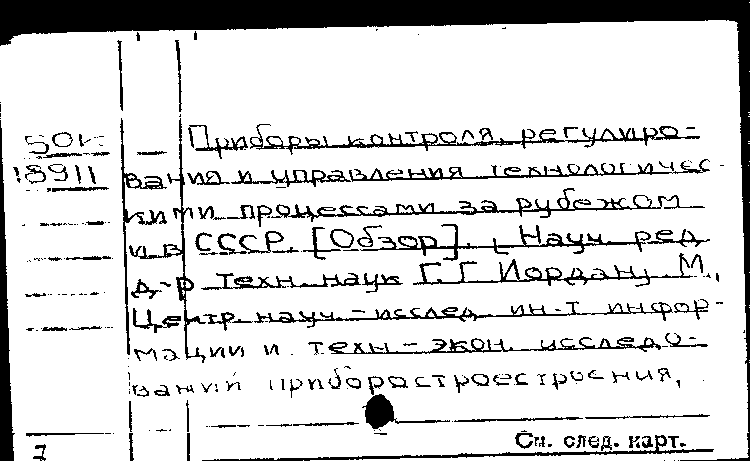 50к
18911
Приборы контроля, регулиро-
вания и управления технологичес-
кими процессами за рубежом
и в СССР. [Обзор]. [Науч. ред
д-р техн. наук Г. Г Йордан] М.,
Центр. науч.-исслед. ин-т инфор-
мации и техн-экон. исследо-
ваний приборостроестроения,
См. след. карт.
7